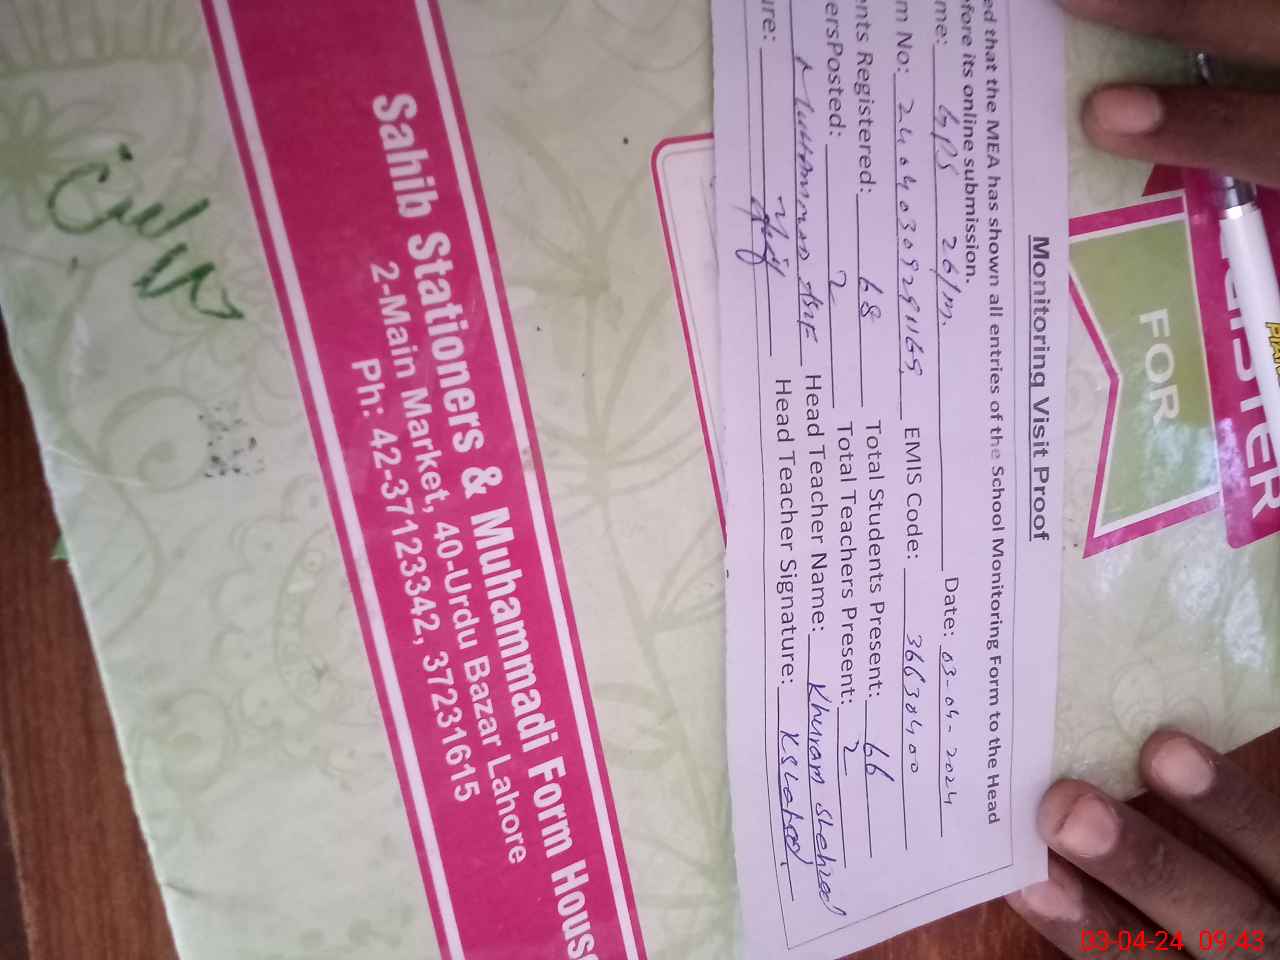 Monitoring Visit Proof
ed that the MEA has shown all entries of the School Monitoring Form to the Head
fore its online submission.
me: GPS 26/m. Date: 03-04-2024
m No: EMIS Code: 36630400
nts Registered: 68 Total Students Present: 66
ersPosted: 2 Total Teachers Present: 2
Muhammad Asif Head Teacher Name: Khuram Shahzad
ure: Head Teacher Signature:
FOR
Sahib Stationers & Muhammadi Form Hous
2-Main Market, 40-Urdu Bazar Lahore
Ph: 42-37123342, 37231615
03-04-24 09:43